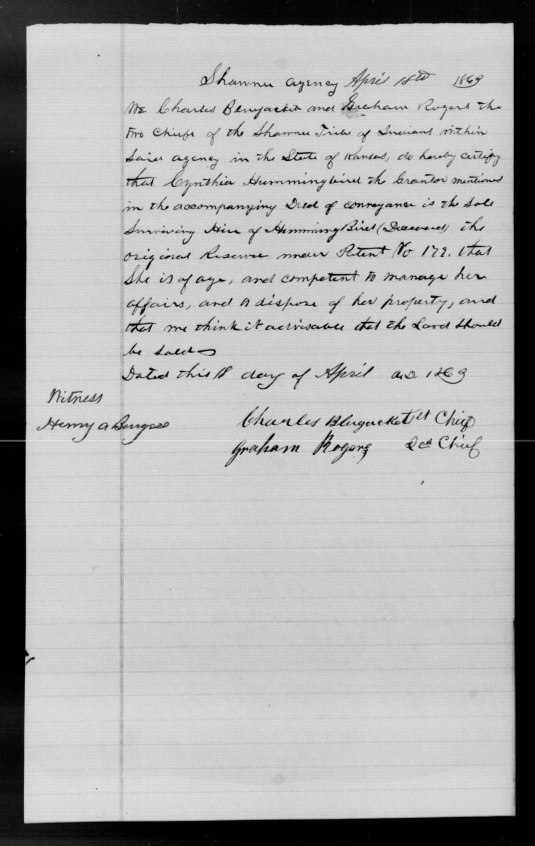 Shawnee Agency April 18th 1869
We Charles Bluejacket and Graham Rogers the
two Chiefs of the Shawnee Tribe of Indians within
said agency in the State of Kansas, do hereby certify
that Cynthia Hummingbird the Grantor mentioned
in the accompanying Deed of conveyance is the sole
surviving Heir of HummingBird (Deceased) the
original Reservee under Patent No 172. that
She is of age, and competent to manage her
affairs, and to dispose of her property, and
that we think it advisable that the Land should
be sold
Dated this 18 day of April AD 1869
Witness
Henry A Burgess
Charles Bluejacket 1st Chief
Graham Rogers 2cd Chief